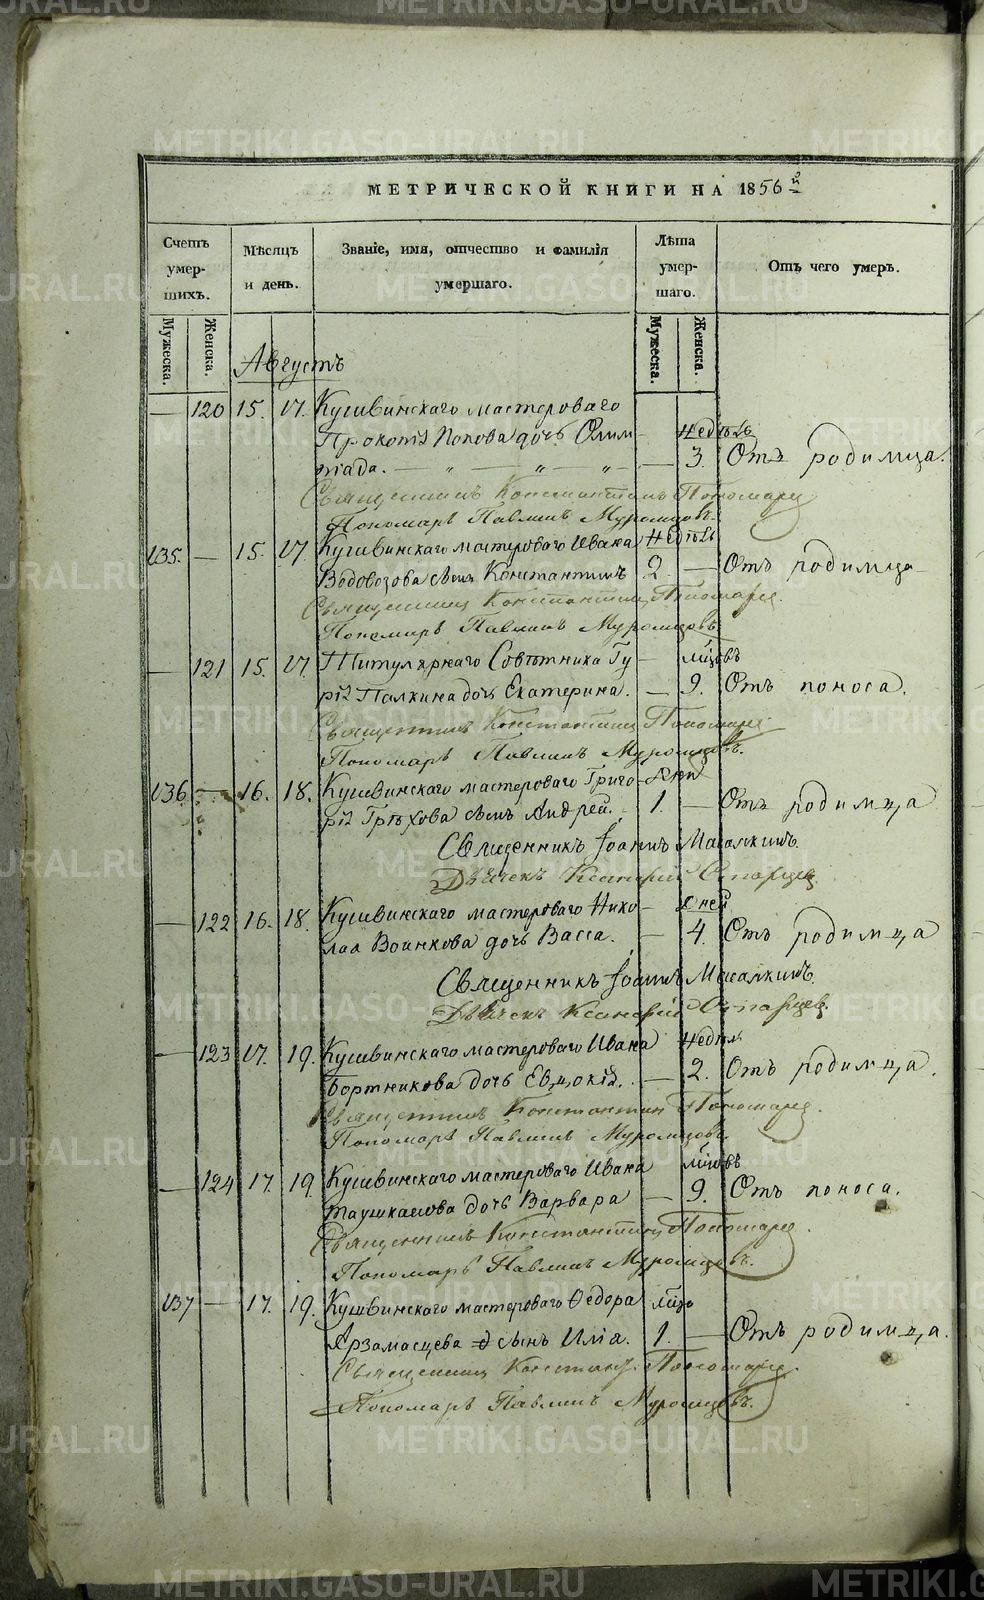 METRIKI.GASO-URAL.RU
МЕТРИЧЕСКОЙ КНИГИ НА 1856й
Счетъ умер- шихъ.
Мѣсяцъ и день.
Званіе, имя, отчество и фамилія умершаго.
Лѣта умер- шаго.
Отъ чего умеръ.
Мужеска. Женска. Мужеска. Женска.
Августъ
— 120 15. 17. Кушвинскаго мастероваго
Прокопія Попова дочь Олим — недѣль
піада. — 3. Отъ родимца.
Священникъ Константинъ Пономарев
Пономарь Павлинъ Муромцовъ.
135. — 15. 17 Кушвинскаго мастероваго Ивана недѣль
Водовозова сынъ Константинъ 2. — Отъ родимца
Священникъ Константинъ Пономарев.
Пономарь Павлинъ Муромцовъ.
— 121 15. 17 Титулярнаго Совѣтника Гу — мѣсяцовъ
рія Палкина дочь Екатерина. — 9. Отъ поноса.
Священникъ Константинъ Пономарев
Пономарь Павлинъ Муромцовъ.
136 — 16. 18. Кушвинскаго мастероваго Григо- день
рія Грѣхова сынъ Андрей. 1. — Отъ родимца
Священникъ Іоаннъ
Дьячекъ
— 122 16. 18. Кушвинскаго мастероваго Нико — дней
лая Воинкова дочь Васса. — 4. Отъ родимца
Священникъ Іоаннъ
Дьячекъ
— 123 17. 19. Кушвинскаго мастероваго Ивана недѣль
Бортникова дочь Евдокія. — 2. Отъ родимца.
Священникъ Константин Пономарев.
Пономарь Павлинъ Муромцовъ.
— 124 17. 19. Кушвинскаго мастероваго Ивана мѣсяцовъ
дочь Варвара — 9. Отъ поноса.
Священникъ Константинъ Пономарев.
Пономарь Павлинъ Муромцовъ.
137 — 17. 19. Кушвинскаго мастероваго Ѳедора
Арзамасцева сынъ Илія. 1. — Отъ родимца.
Священникъ Констант. Пономарев.
Пономарь Павлинъ Муромцовъ.